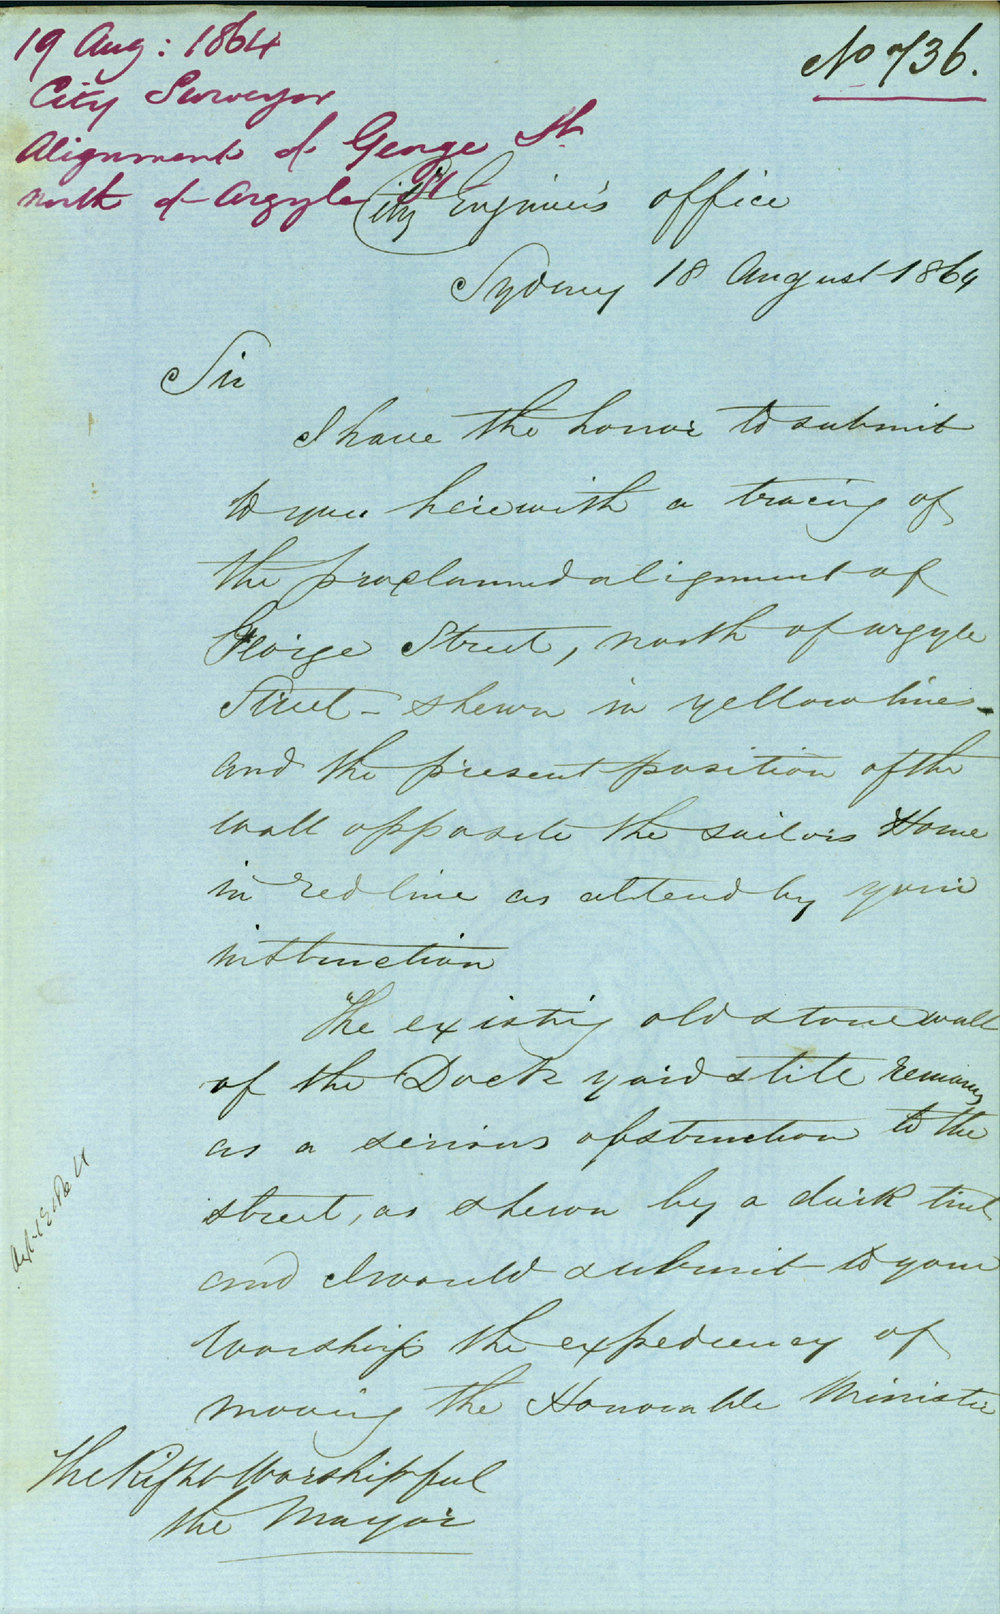 19 Aug: 1864
City Surveyor
Alignment of George St
North of Argyle St
No 736.
City Engineer's office
Sydney 18 August 1864
Sir
I have the honor to submit
to you herewith a tracing of
the proclaimed alignment of
George Street, north of argyle
Street - shewn in yellow lines -
and the present position of the
wall opposite the sailors Home
in red line as altered by your
instruction
The existing old stone wall
of the Dock yard still remains
as a serious obstruction to the
street, as shewn by a dark tint
and I would submit to your
Worship the expediency of
moving the Honorable Minister
The Right Worshipful
the Mayor